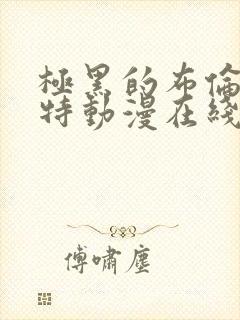 極黑的布倫
特動漫在綫
傅嘯塵